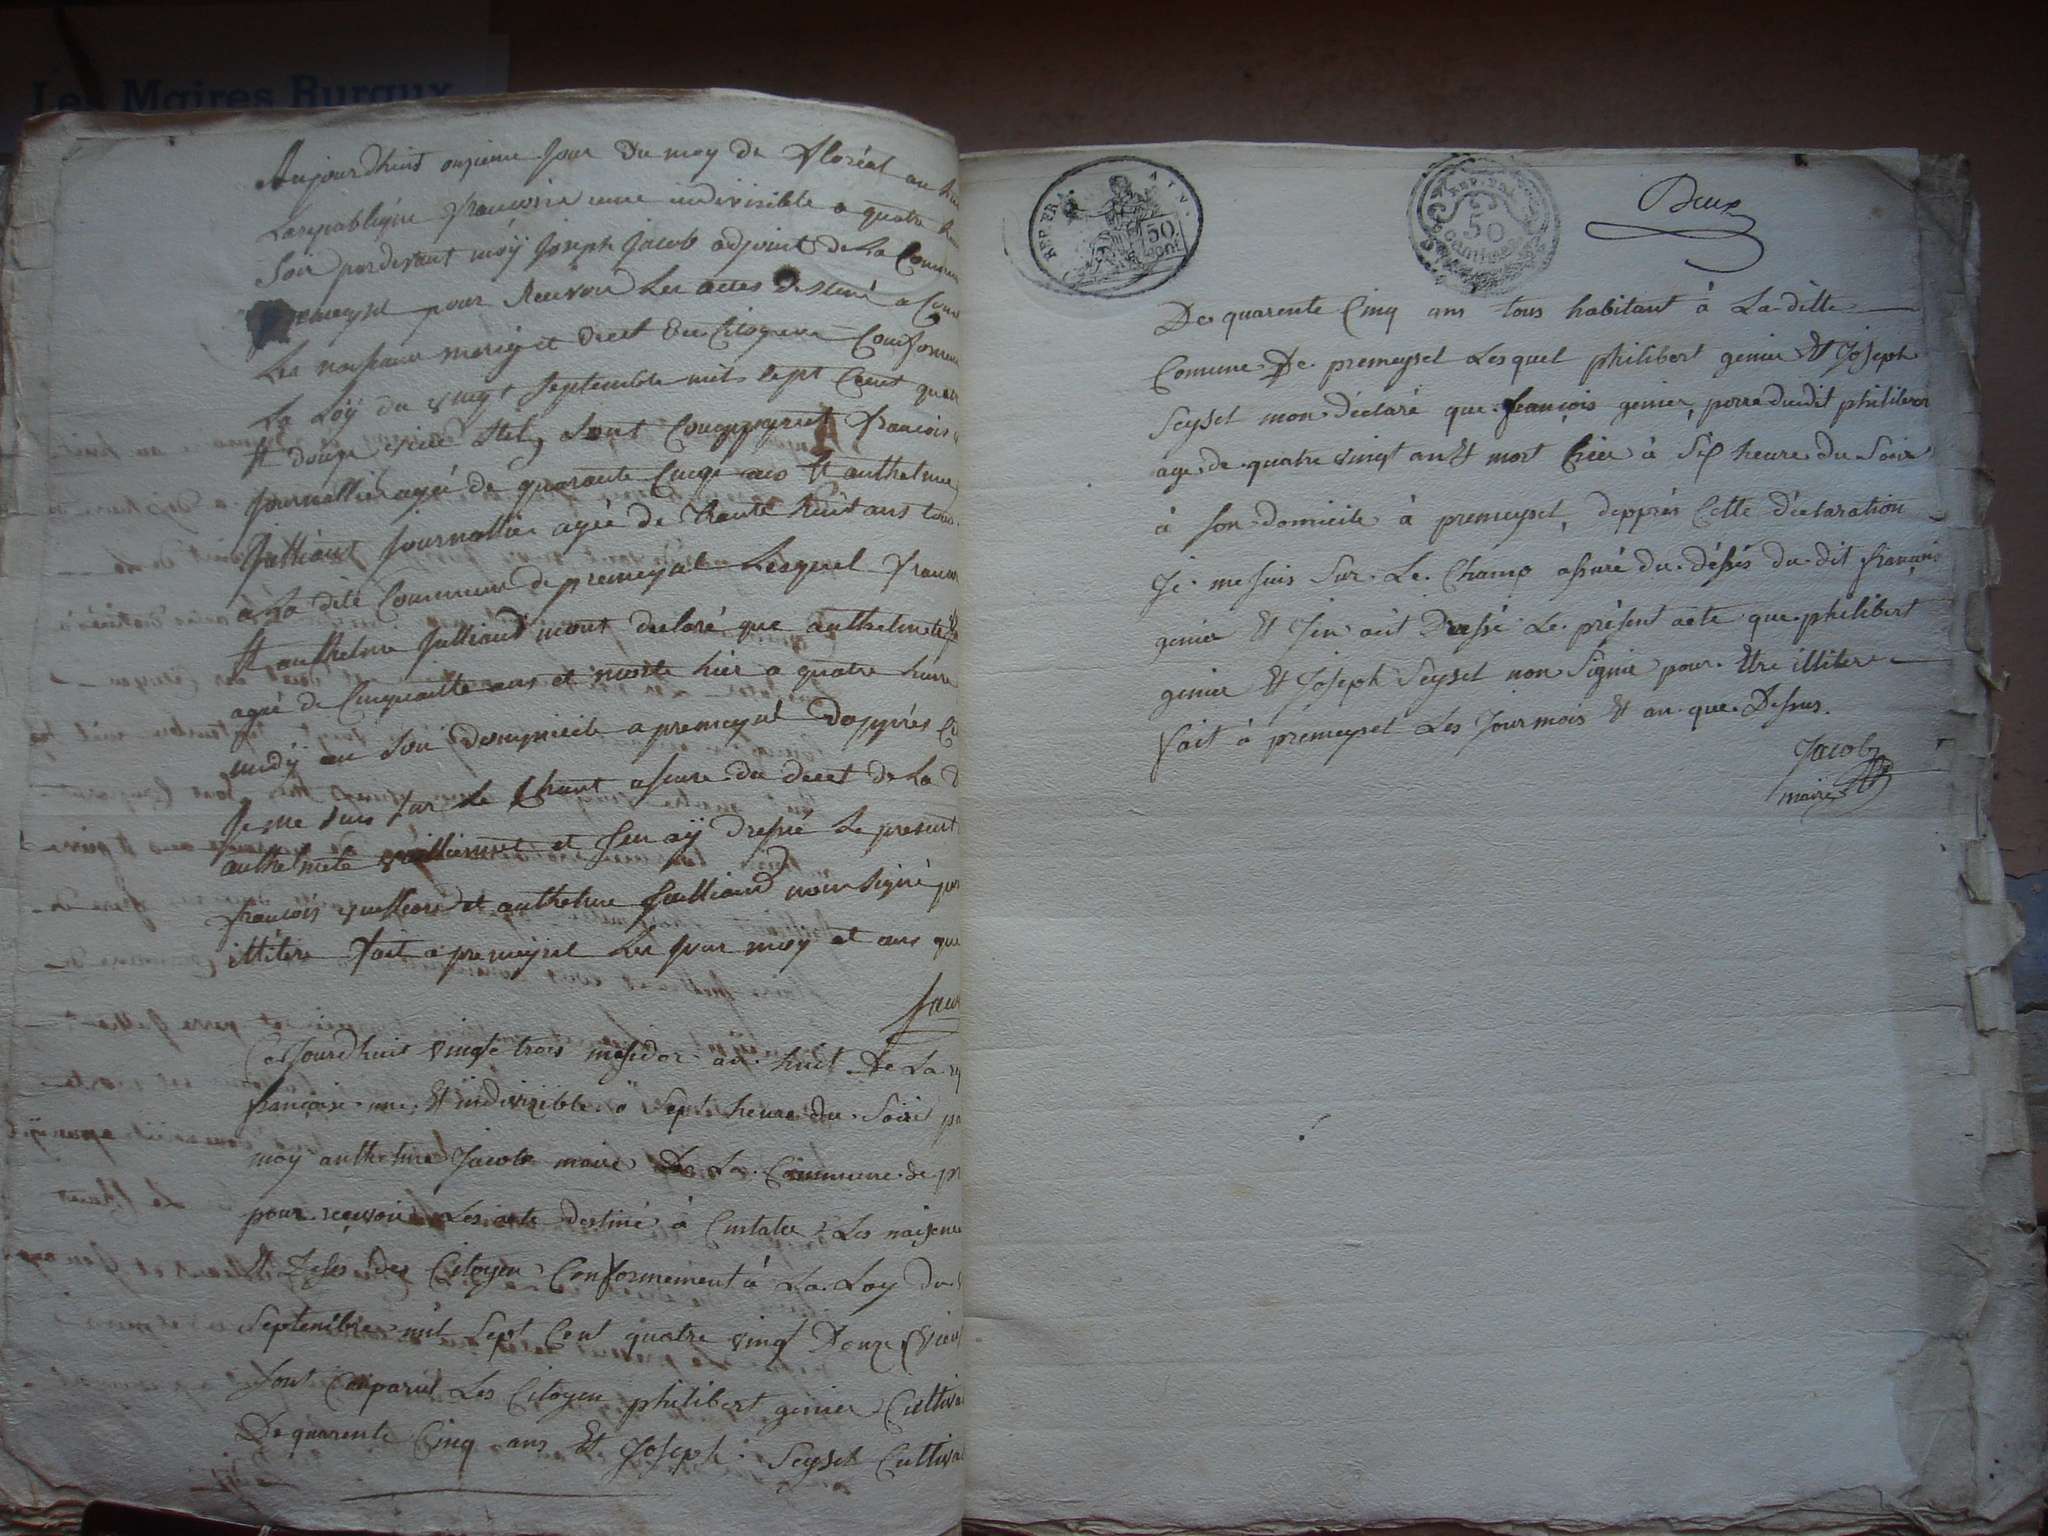 Les Maires Ruraux
Aujourdhuit onzieme Jour du moy de floréal an
La republique francoise une indivisible a quatre
Soir pardevant moÿ Joseph Jacob adjoint de La Comun
premeysel pour Recevoir Les actes destiné a Cons
Les naissance mariage et decet des Citoyens Conformem
La Loÿ du vingt Septembre mil sept Cent quatr
Et douze vieu stil, Sont Comparut francois
Journallier agée de quarante Cinqt ans Et anthelme
Julliand Journallier agée de trante huit ans tous
a La dite Commune de premeysel Lesquel franc
Et anthelme Julliand mont declaré que anthelmete
agée de Cinquantte ans et morte hier a quatre heure
midÿ en son domicile a premeysel dapprés
Je me suis sur Le Chant assure du decet de La
anthelmete vuilliermet et Jen aÿ dressé Le present
francois et anthelme Julliand non signé pour
illitere fait a premeysel Les Jour moy et ans que
Jaco
Ce Jourdhuit vingte trois mesidor an huit De La
française une Et indivisible à Sept heure du Soire
moÿ anthelme Jacob maire De La Commune de pr
pour recevoir Les acte destiné à Cınstater Les naisence
Et deses des Citoyen Conformement à La Loy du
Septembre mil Sept Cent quatre vingt Douze vieu
Sont Comparut Les Citoyen philibert genier Cultiva
De quarente Cinq ans Et Joseph Seysel Cultiva
REP. FRA
50
CENT
REP. FRA
50
Centimes
Deux
De quarente Cinq ans tous habitant à La ditte
Comune De premeysel Lesquel philibert genier Et Joseph
Seysel mon déclaré que françois genier, perre dudit philibert
age de quatre vingt an Et mort hier à Six heure du Soire
à son domicile à premeysel, depprés Cette déclaration
Je me suis Sur Le Champ assuré du déssés du dit françois
genier Et Jen ait Dressé Le présent acte que philibert
genier Et Joseph Seysel non Signer pour Etre illitere
fait à premeysel Les Jour mois Et an que Dessus.
Jacob
maire